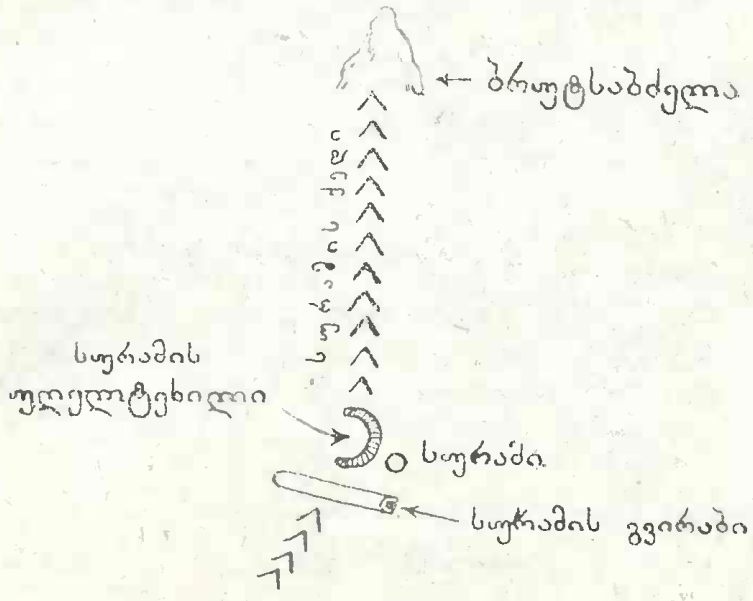 ბრუტსაბძელა
სურამის ქედი
სურამის
უღელტეხილი
სურამი
სურამის გვირაბი